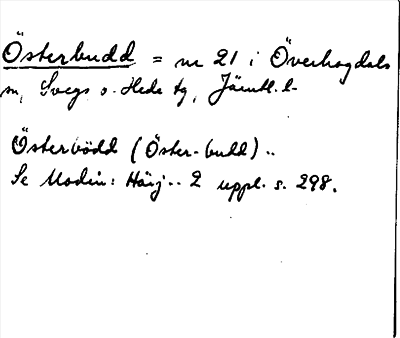 Österbudd = nr 21 i Överhogdals
sn, Svegs o. Hede tg, Jämtl. l.
Österbödd (Öster-budd)..
Se Modin: Härj.. 2 uppl. s. 298.